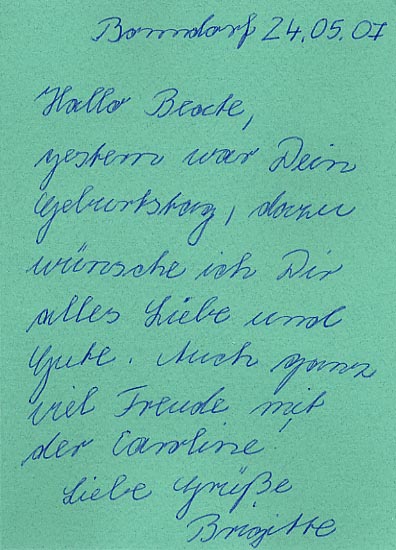 Bonndorf 24.05.07
Hallo Beate,
gestern war Dein
Geburtstag, dazu
wünsche ich Dir
alles Liebe und
Gute. Auch ganz
viel Freude mit
der Caroline!
Liebe Grüße
Brigitte